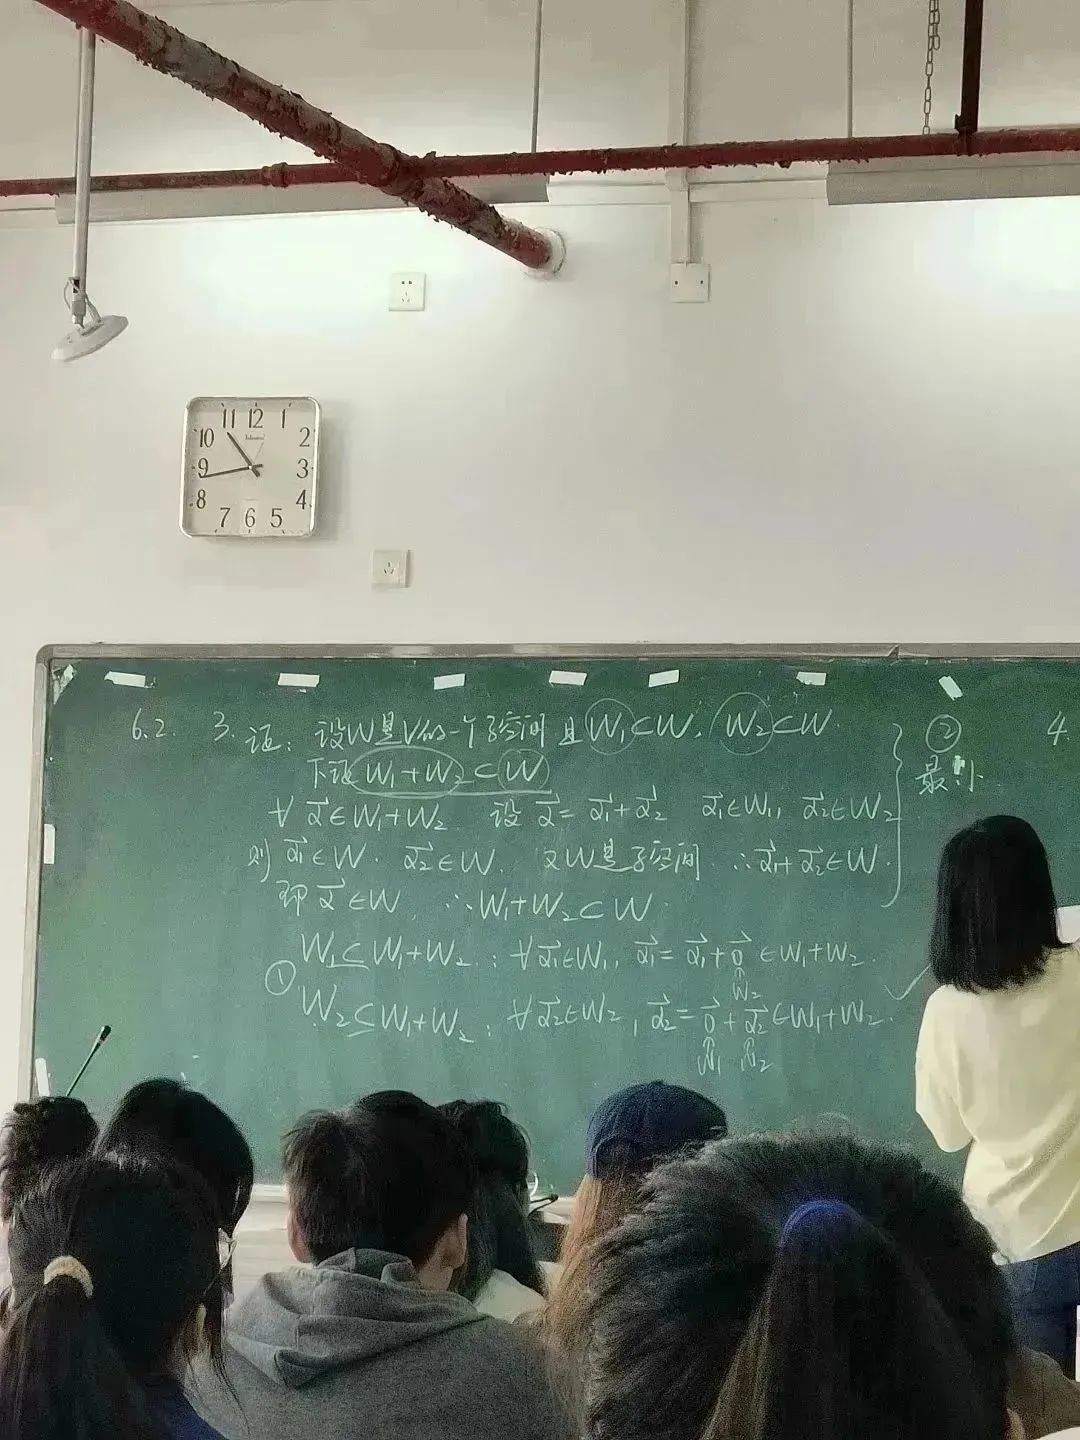 11 12 1
10 2
9 3
8 4
7 6 5
6.2. 3. 证: 设W是V的一个子空间 且 W₁⊂W, W₂⊂W.
下证 W₁+W₂⊂W
∀ α⃗∈W₁+W₂ 设 α⃗=α⃗₁+α⃗₂ α⃗₁∈W₁, α⃗₂∈W₂
则 α⃗₁∈W. α⃗₂∈W. 又W是子空间 ∴α⃗₁+α⃗₂∈W.
即 α⃗∈W, ∴W₁+W₂⊂W.
②
最小
① W₁⊆W₁+W₂: ∀α⃗₁∈W₁, α⃗₁=α⃗₁+0⃗ ∈W₁+W₂.
W₂
W₂⊆W₁+W₂: ∀α⃗₂∈W₂, α⃗₂=0⃗+α⃗₂∈W₁+W₂.
W₁ W₂
4.